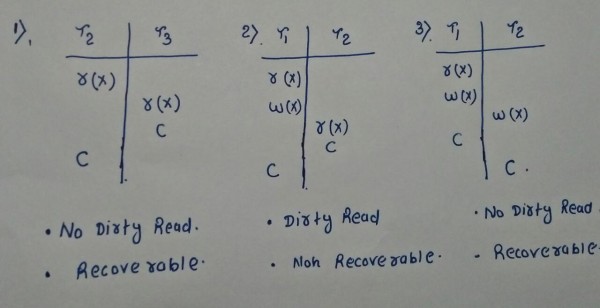 1). T2 T3
r(x)
r(x)
C
C
• No Dirty Read.
• Recoverable.
2). T1 T2
r(x)
w(x)
r(x)
C
C
• Dirty Read
• Non Recoverable.
3). T1 T2
r(x)
w(x)
w(x)
C
C.
• No Dirty Read
• Recoverable.